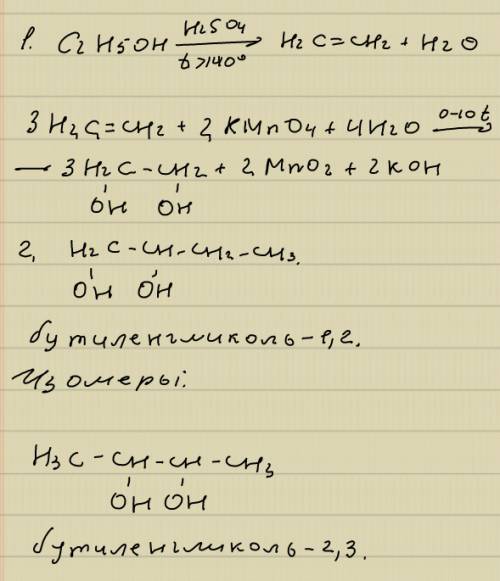 1. C2H5OH H2SO4 t>140° → H2C=CH2 + H2O
3H2C=CH2 + 2KMnO4 + 4H2O 0-10t →
— 3H2C-CH2 + 2MnO2 + 2KOH
OH OH
2, H2C-CH-CH2-CH3.
OH OH
бутиленгликоль-1,2.
Изомеры:
H3C-CH-CH-CH3
OH OH
бутиленгликоль-2,3.